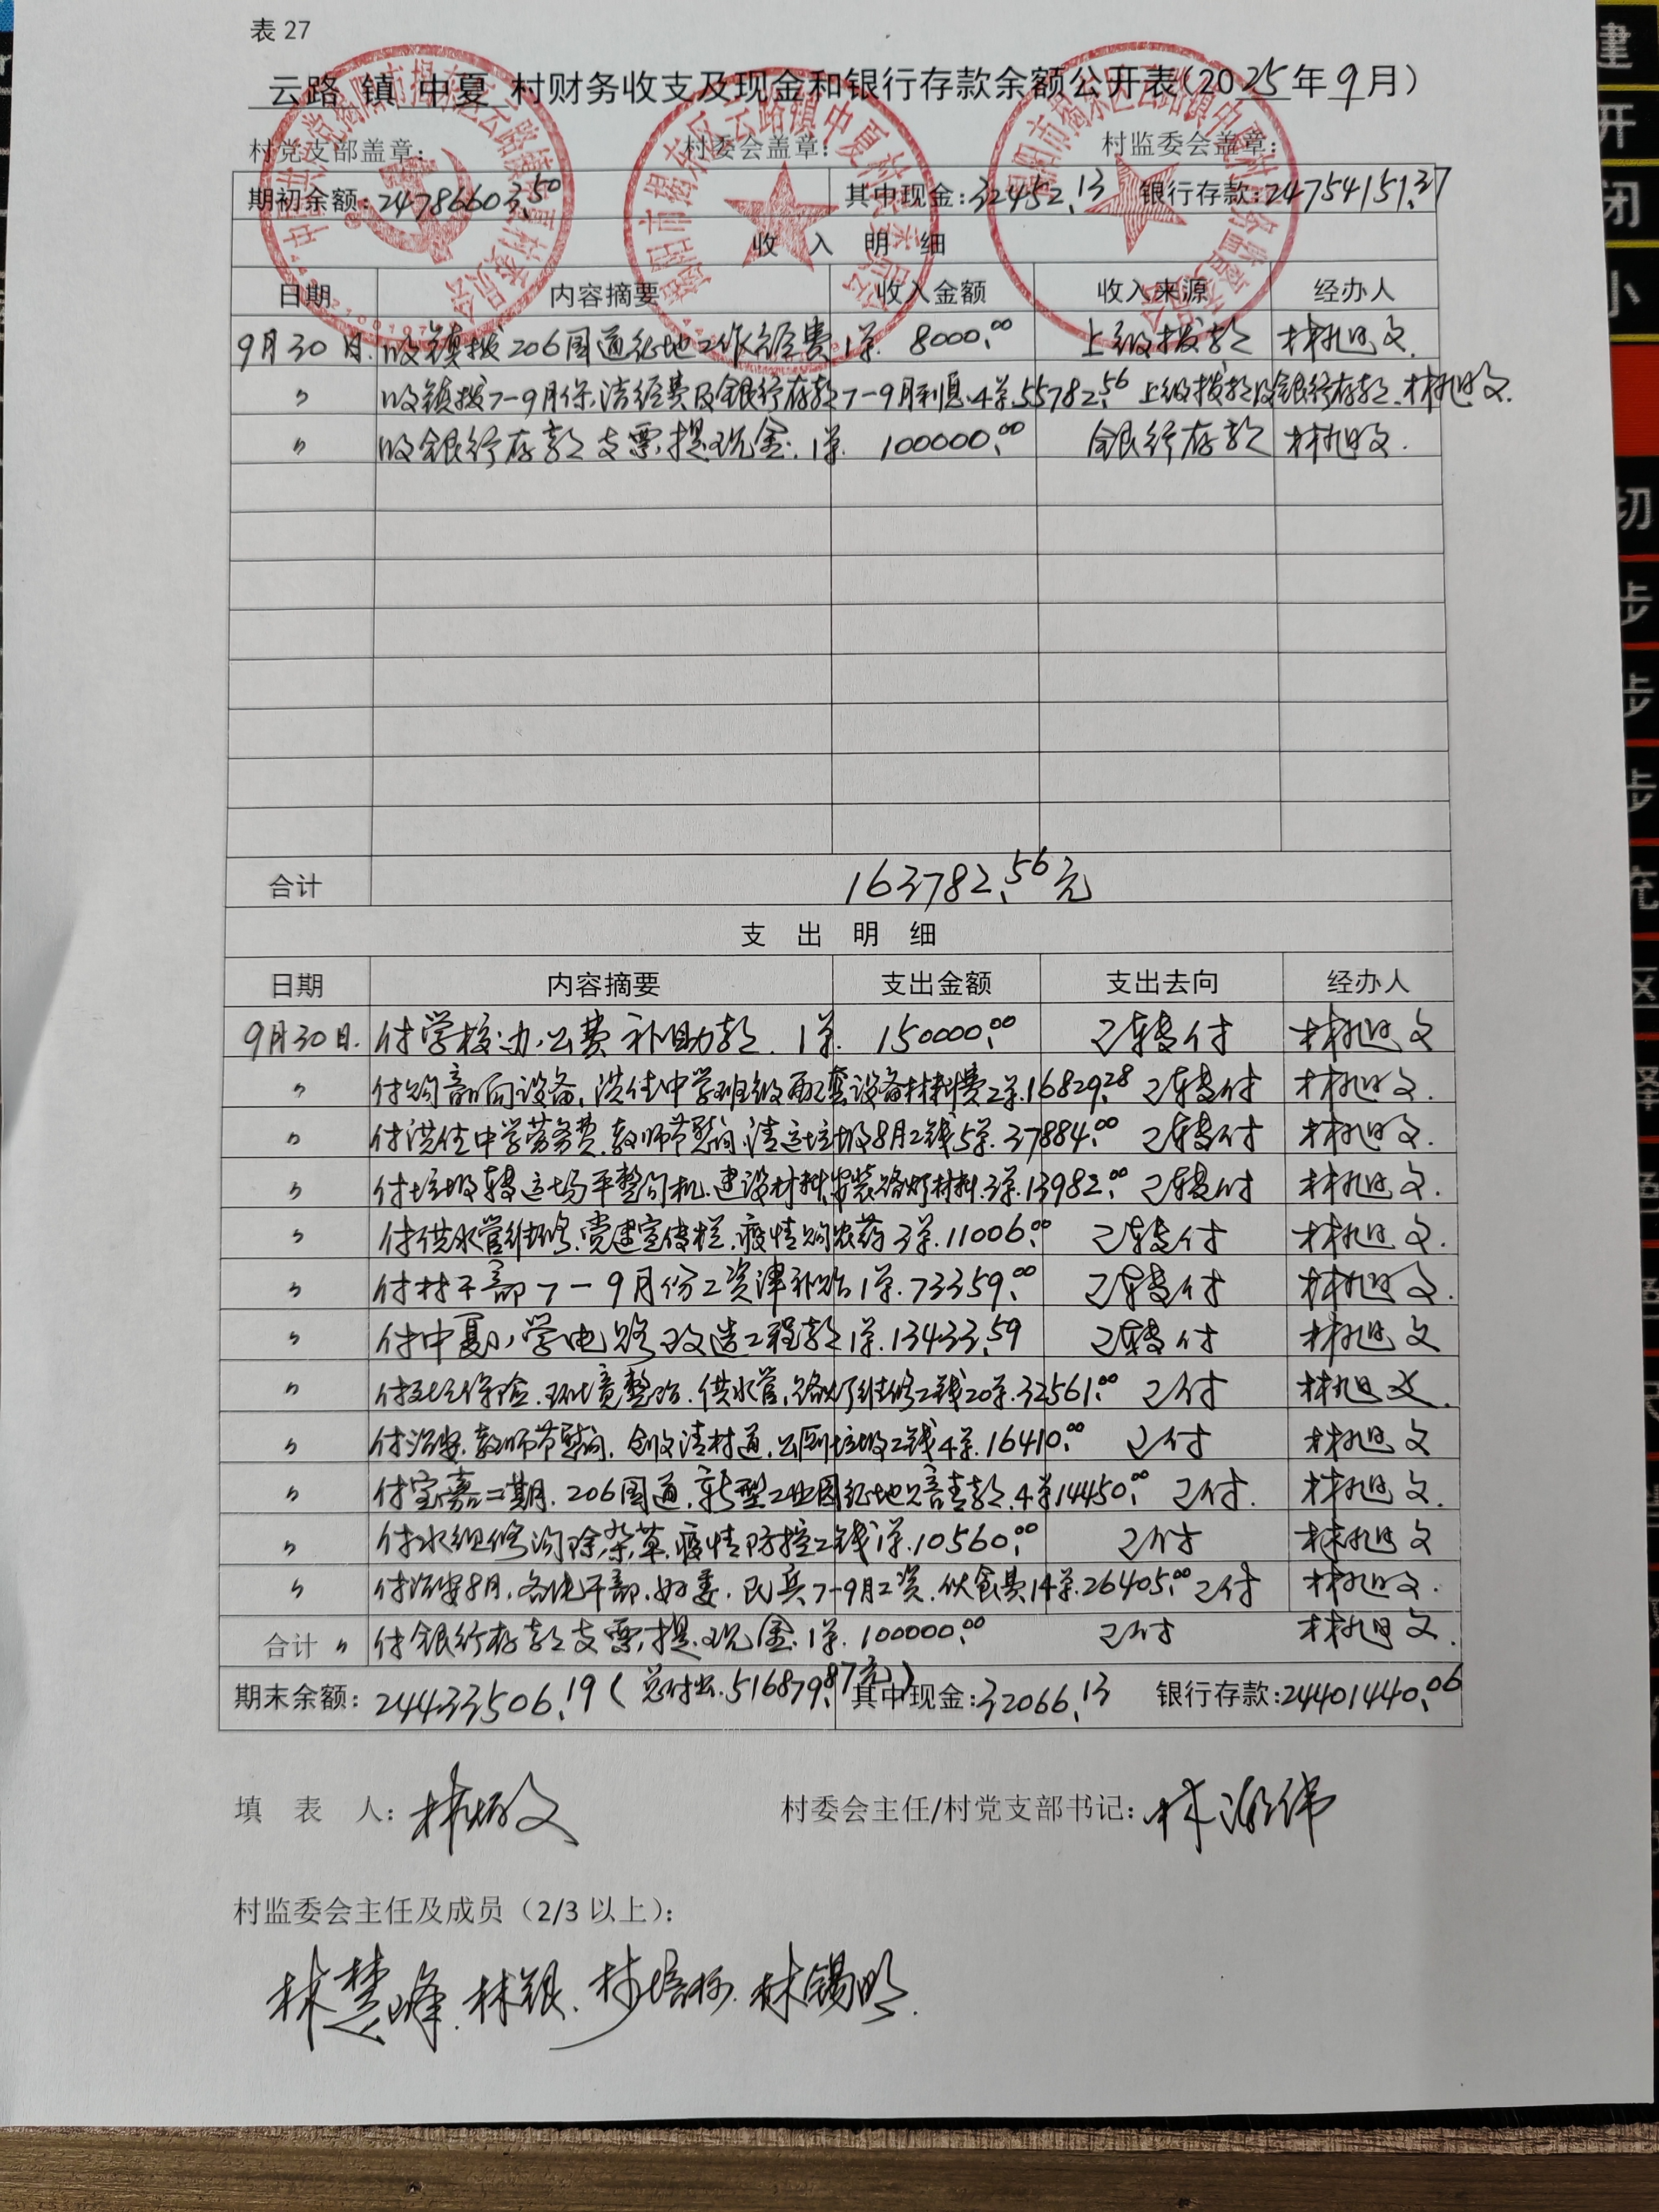 表 27
云路 镇 中夏 村财务收支及现金和银行存款余额公开表(2025年9月)
村党支部盖章: 村委会盖章: 村监委会盖章:
期初余额:24786603.50 其中现金:32452.13 银行存款:24754151.37
收 入 明 细
日期 内容摘要 收入金额 收入来源 经办人
9月30日. 收镇拨206国道征地工作经费1单. 8000.00 上级拨款 林旭文.
〃 收镇拨7-9月保洁经费及银行存款7-9月利息.4单.55782.56 上级拨款及银行存款.林旭文.
〃 收银行存款支票提现金.1单. 100000.00 银行存款 林旭文.
合计 163782.56元
支 出 明 细
日期 内容摘要 支出金额 支出去向 经办人
9月30日. 付学校办公费补助款.1单. 150000.00 已转付 林旭文
〃 付购音响设备,洪住中学班级配套设备材料费2单.16829.28 已转付 林旭文.
〃 付洪住中学劳务费.教师节慰问.清运垃圾8月工钱5单.37884.00 已转付 林旭文.
〃 付垃圾转运场平整勾机.建设材料,安装路灯材料.3单.13982.00 已转付 林旭文.
〃 付供水管维修.党建宣传栏.疫情购农药3单.11006.00 已转付 林旭文.
〃 付村干部7-9月份工资津补贴1单.73359.00 已转付 林旭文.
〃 付中夏小学电路改造工程款1单.13433.59 已转付 林旭文
〃 付社保险.环境整治.供水管,路灯维修工钱20单.32561.00 已付 林旭文.
〃 付治安.教师节慰问.创收清村道.公厕垃圾工钱4单.16410.00 已付 林旭文
〃 付宝嘉二期.206国道.新型工业园征地青苗款.4单14450.00 已付. 林旭文.
〃 付水组修沟除杂草.疫情防控工钱1单.10560.00 已付 林旭文
〃 付治安8月.各线干部.妇委.民兵7-9月工资.伙食费14单.26405.00 已付 林旭文.
合计 〃 付银行存款支票提现金.1单.100000.00 已付 林旭文.
期末余额:24433506.19(总付出.516879.87元) 其中现金:32066.13 银行存款:24401440.06
填 表 人: 林文
村委会主任/村党支部书记: 林伟
村监委会主任及成员(2/3以上):
林慧峰.林银.林.林锡明.